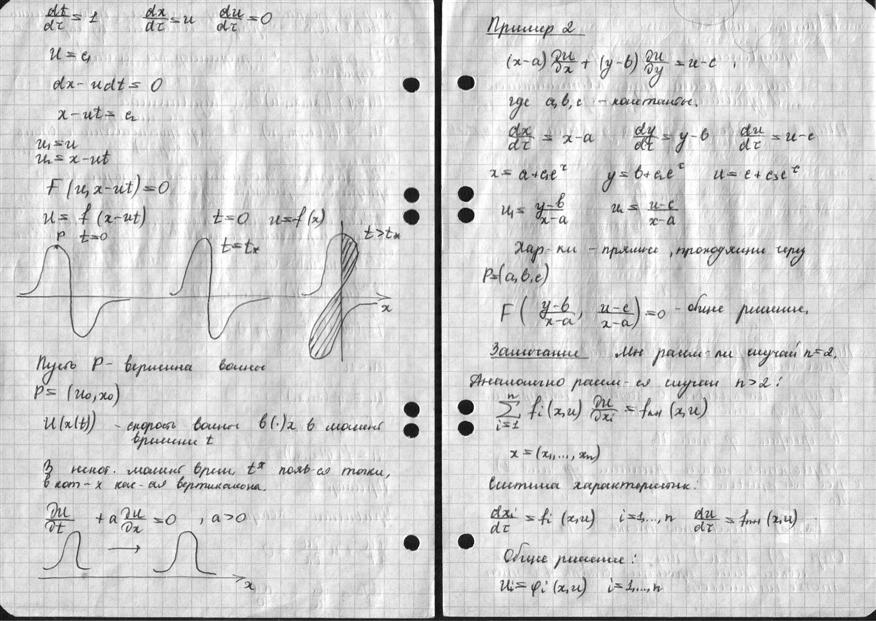 dt/dτ = 1   dx/dτ = u   du/dτ = 0
u = c₁
dx - udt = 0
x - ut = c₂
u₁ = u
u₂ = x - ut
F(u, x - ut) = 0
u = f(x - ut)   t=0   u = f(x)
P t=0   t = t*   t > t*
x
Пусть P - вершина волны
P = (u₀, x₀)
U(x(t)) - скорость волны в (·) x в момент
времени t
В некот. момент врем. t* появ-ся точки,
в кот-х кас-ая вертикальна.
∂u/∂t + a ∂u/∂x = 0 , a > 0
x
Пример 2
(x-a) ∂u/∂x + (y-b) ∂u/∂y = u - c ,
где a, b, c - константы.
dx/dτ = x - a   dy/dτ = y - b   du/dτ = u - c
x = a + c₁e^τ   y = b + c₂e^τ   u = c + c₃e^τ
u₁ = (y-b)/(x-a)   u₂ = (u-c)/(x-a)
Хар-ки - прямые, проходящие через
P = (a, b, c)
F( (y-b)/(x-a), (u-c)/(x-a) ) = 0 - общее решение.
Замечание Мы рассм-ли случай n=2.
Аналогично рассм-ся случай n > 2 :
∑ⁿᵢ₌₁ fᵢ(x,u) ∂u/∂xᵢ = fₙ₊₁(x,u)
x = (x₁, ..., xₙ)
Система характеристик:
dxᵢ/dτ = fᵢ(x,u)   i=1,...,n   du/dτ = fₙ₊₁(x,u)
Общее решение:
uᵢ = φᵢ(x,u)   i=1,...,n